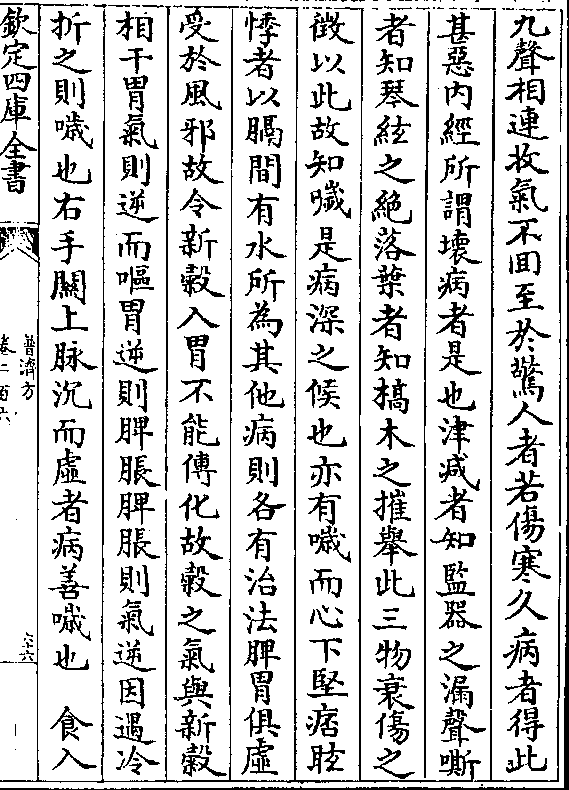 九聲相連收氣不回至於驚人者若傷寒久病者得此
甚惡内經所謂壊病者是也津减者知監器之漏聲嘶
者知琴絃之絶落葉者知槁木之摧舉此三物衰傷之
徴以此故知噦是病深之候也亦有噦而心下堅痞眩
悸者以膈間有水所為其他病則各有治法脾胃俱虛
受於風邪故令新糓入胃不能傳化故糓之氣與新糓
相干胃氣則逆而嘔胃逆則脾脹脾脹則氣逆因遇冷
折之則噦也右手關上脉沉而虛者病善噦也　食入
欽定四庫全書
普濟方
卷二百六
六十六